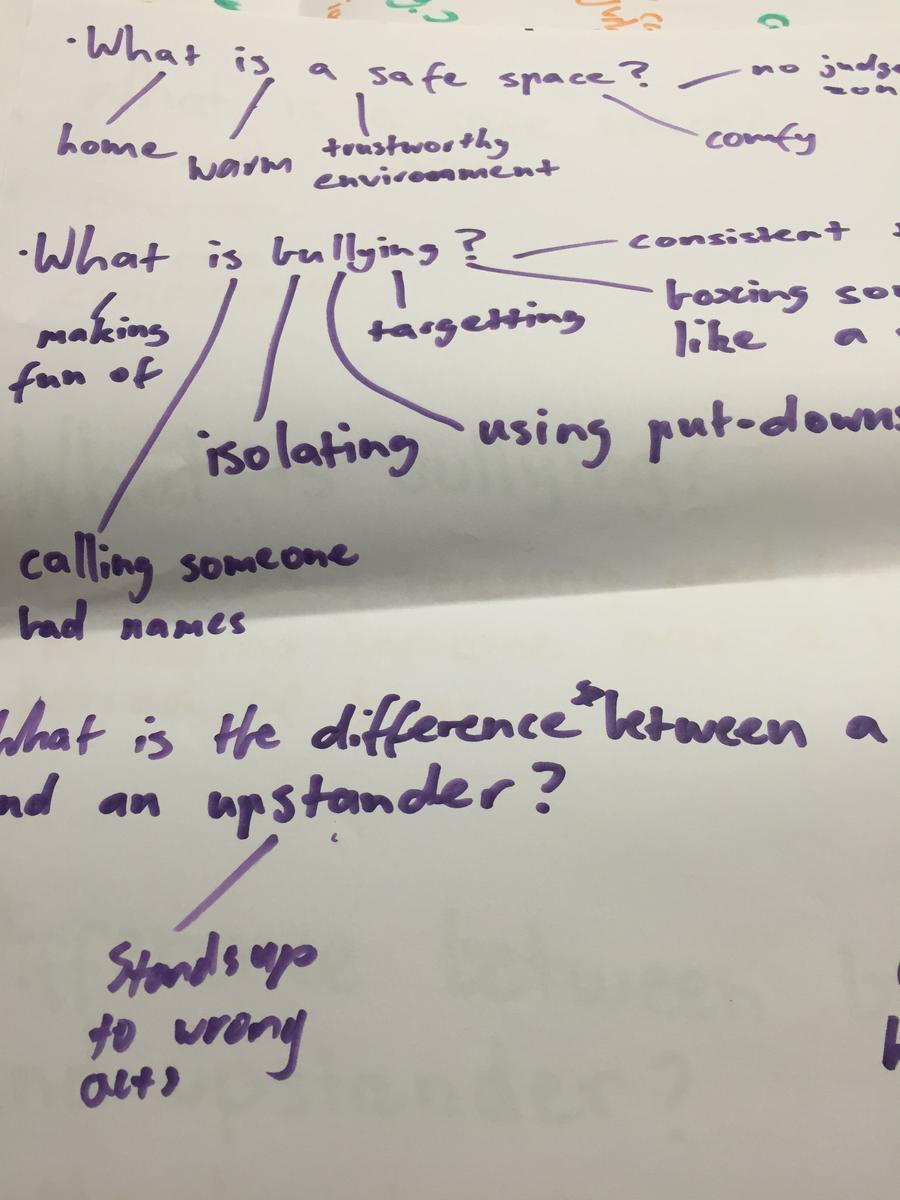 ·What is a safe space?
no
home
warm
trustworthy
environment
comfy
·What is bullying?
consistent
boxing
like a
making
fun of
targetting
isolating
using put-downs
calling someone
bad names
What is the difference between a
an upstander?
Stands up
to wrong
acts